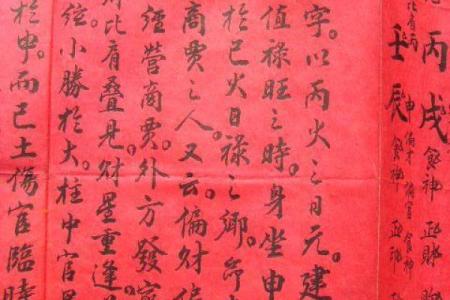 丙戌 食神 正財
壬辰 食神 正印
字。以丙火之日元。建
值祿旺之時。身坐申
於巳火日祿之鄉。命
商賈之人。又云。偏財
經營商賈。外方發富
比肩疊見。財星重逢
位。小勝於大。柱中官星
於中。而己土傷官臨時